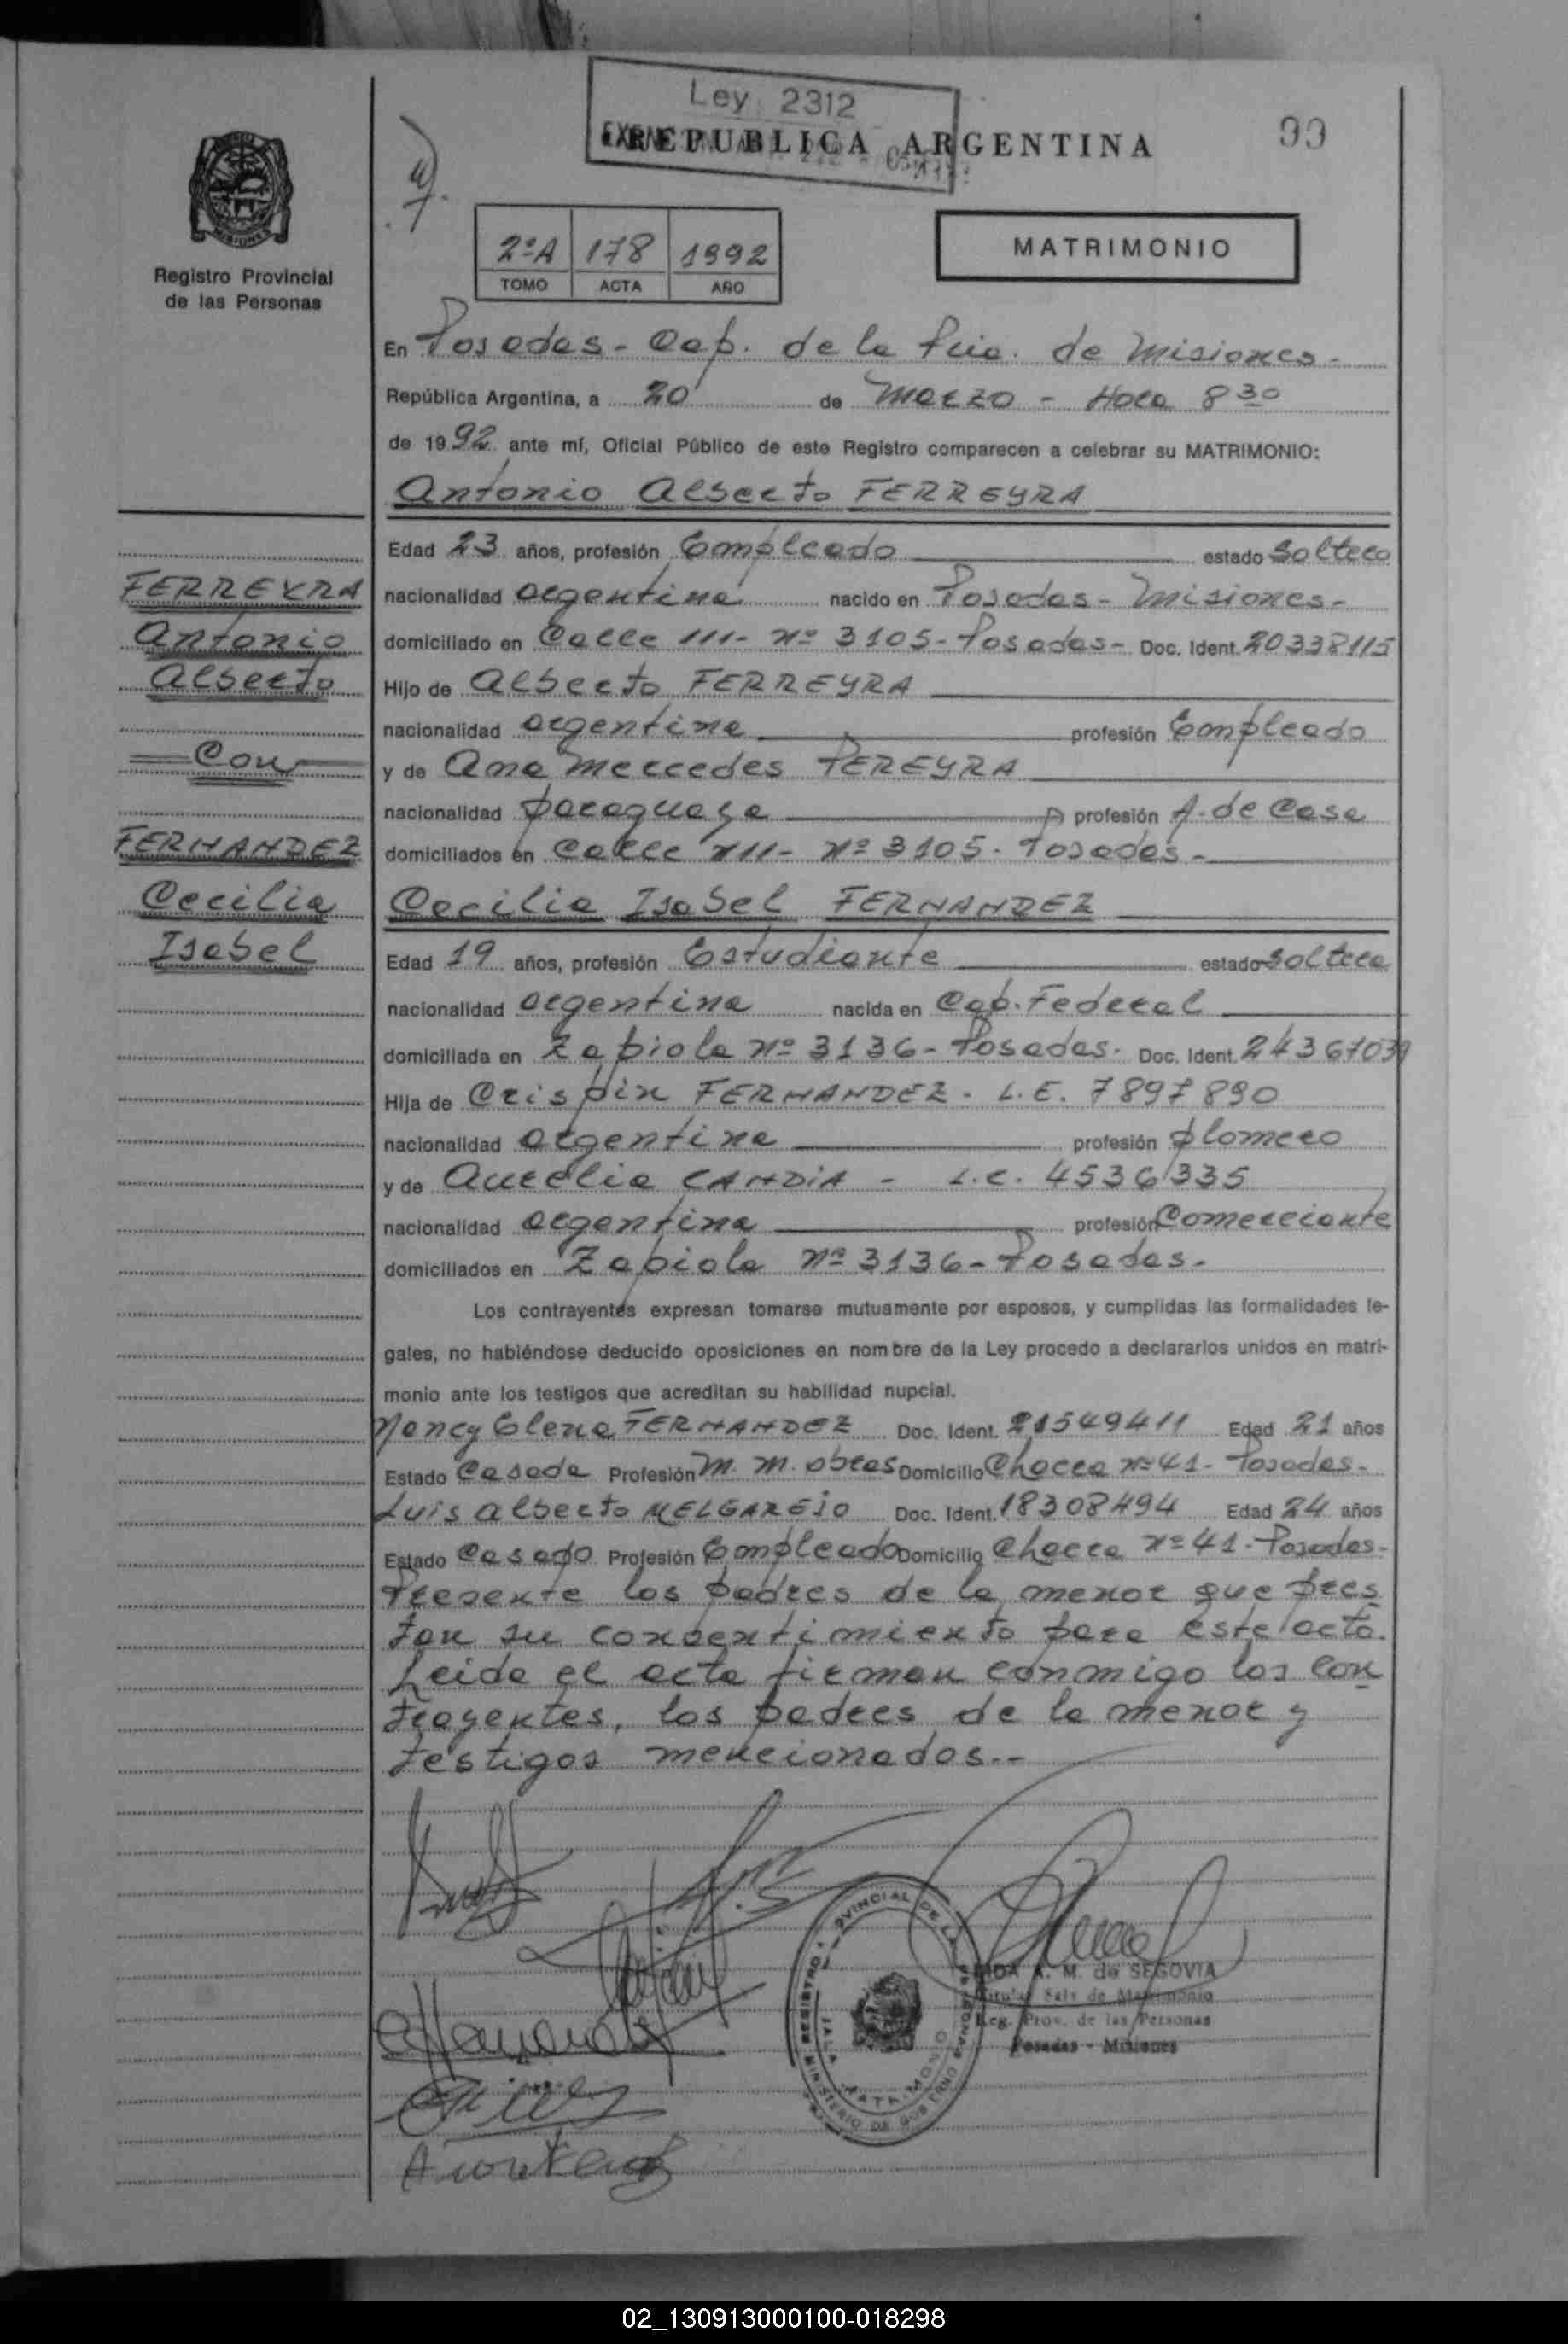 Ley 2312
REPUBLICA ARGENTINA
99
MISIONES
Registro Provincial
de las Personas
2ºA 178 1992
TOMO ACTA AÑO
MATRIMONIO
En Posadas - Cap. de la Pcia. de Misiones -
República Argentina, a 20 de Marzo - Hora 8 30
de 1992 ante mí, Oficial Público de este Registro comparecen a celebrar su MATRIMONIO:
Antonio Alberto FERREYRA
Edad 23 años, profesión Empleado estado Soltero
FERREYRA
Antonio
Alberto
Con
FERNANDEZ
Cecilia
Isabel
nacionalidad argentina nacido en Posadas - Misiones -
domiciliado en Calle 111 - Nº 3105 - Posadas - Doc. Ident. 20338115
Hijo de Alberto FERREYRA
nacionalidad argentina profesión Empleado
y de Ana Mercedes PEREYRA
nacionalidad paraguaya profesión A. de Casa
domiciliados en Calle 111 - Nº 3105 - Posadas -
Cecilia Isabel FERNANDEZ
Edad 19 años, profesión Estudiante estado Soltera
nacionalidad argentina nacida en Cap. Federal
domiciliada en Zapiola Nº 3136 - Posadas. Doc. Ident. 24367039
Hija de Crispin FERNANDEZ - L.E. 7897890
nacionalidad argentina profesión plomero
y de Aurelia CANDIA - L.C. 4536335
nacionalidad argentina profesión Comerciante
domiciliados en Zapiola Nº 3136 - Posadas.
Los contrayentes expresan tomarse mutuamente por esposos, y cumplidas las formalidades le-
gales, no habiéndose deducido oposiciones en nombre de la Ley procedo a declararlos unidos en matri-
monio ante los testigos que acreditan su habilidad nupcial.
Nancy Elena FERNANDEZ Doc. Ident. 21549411 Edad 21 años
Estado Casada Profesión M. M. obras Domicilio Chacra Nº 41 - Posadas -
Luis Alberto MELGAREJO Doc. Ident. 18308494 Edad 24 años
Estado Casado Profesión Empleado Domicilio Chacra Nº 41 - Posadas -
Presente los padres de la menor que pres
tan su consentimiento para este acto.
Leida el acta firman conmigo los con
trayentes, los padres de la menor y
testigos mencionados.--
A. M. de SEGOVIA
Titular Sala de Matrimonio
Reg. Prov. de las Personas
Posadas - Misiones
02_130913000100-018298